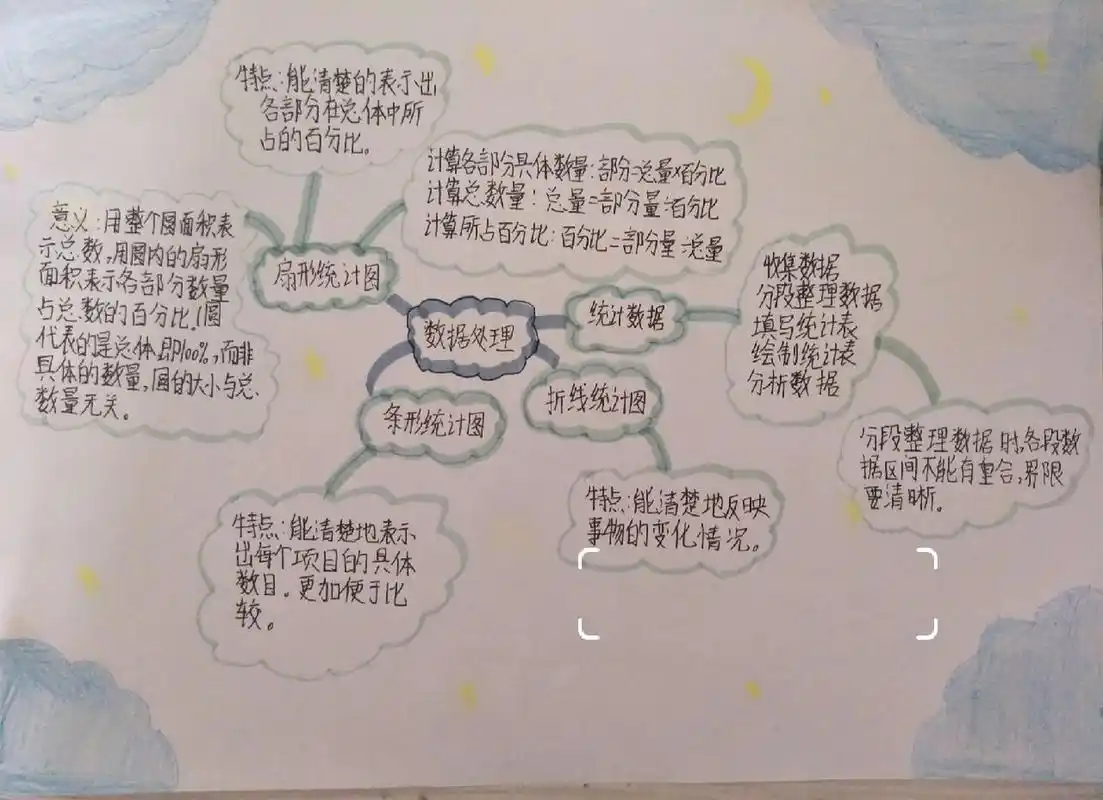 特点:能清楚的表示出
各部分在总体中所
占的百分比。
计算各部分具体数量:部分=总量×百分比
计算总数量:总量=部分量÷百分比
计算所占百分比:百分比=部分量÷总量
意义:用整个圆面积表
示总数,用圆内的扇形
面积表示各部分数量
占总数的百分比.(圆
代表的是总体即100%,而非
具体的数量,圆的大小与总
数量无关。
扇形统计图
数据处理
统计数据
收集数据
分段整理数据
填写统计表
绘制统计表
分析数据
条形统计图
折线统计图
分段整理数据时,各段数
据区间不能有重合,界限
要清晰。
特点:能清楚地表示
出每个项目的具体
数目。更加便于比
较。
特点:能清楚地反映
事物的变化情况。